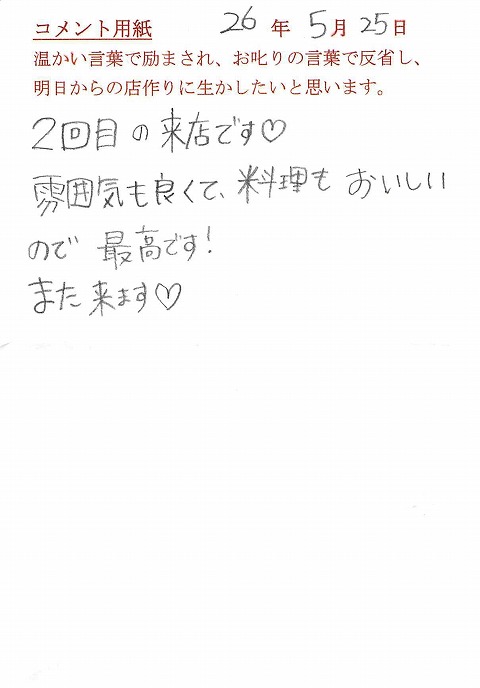 コメント用紙 26年5月25日
温かい言葉で励まされ、お叱りの言葉で反省し、
明日からの店作りに生かしたいと思います。
2回目の来店です♡
雰囲気も良くて、料理もおいしい
ので最高です!
また来ます♡